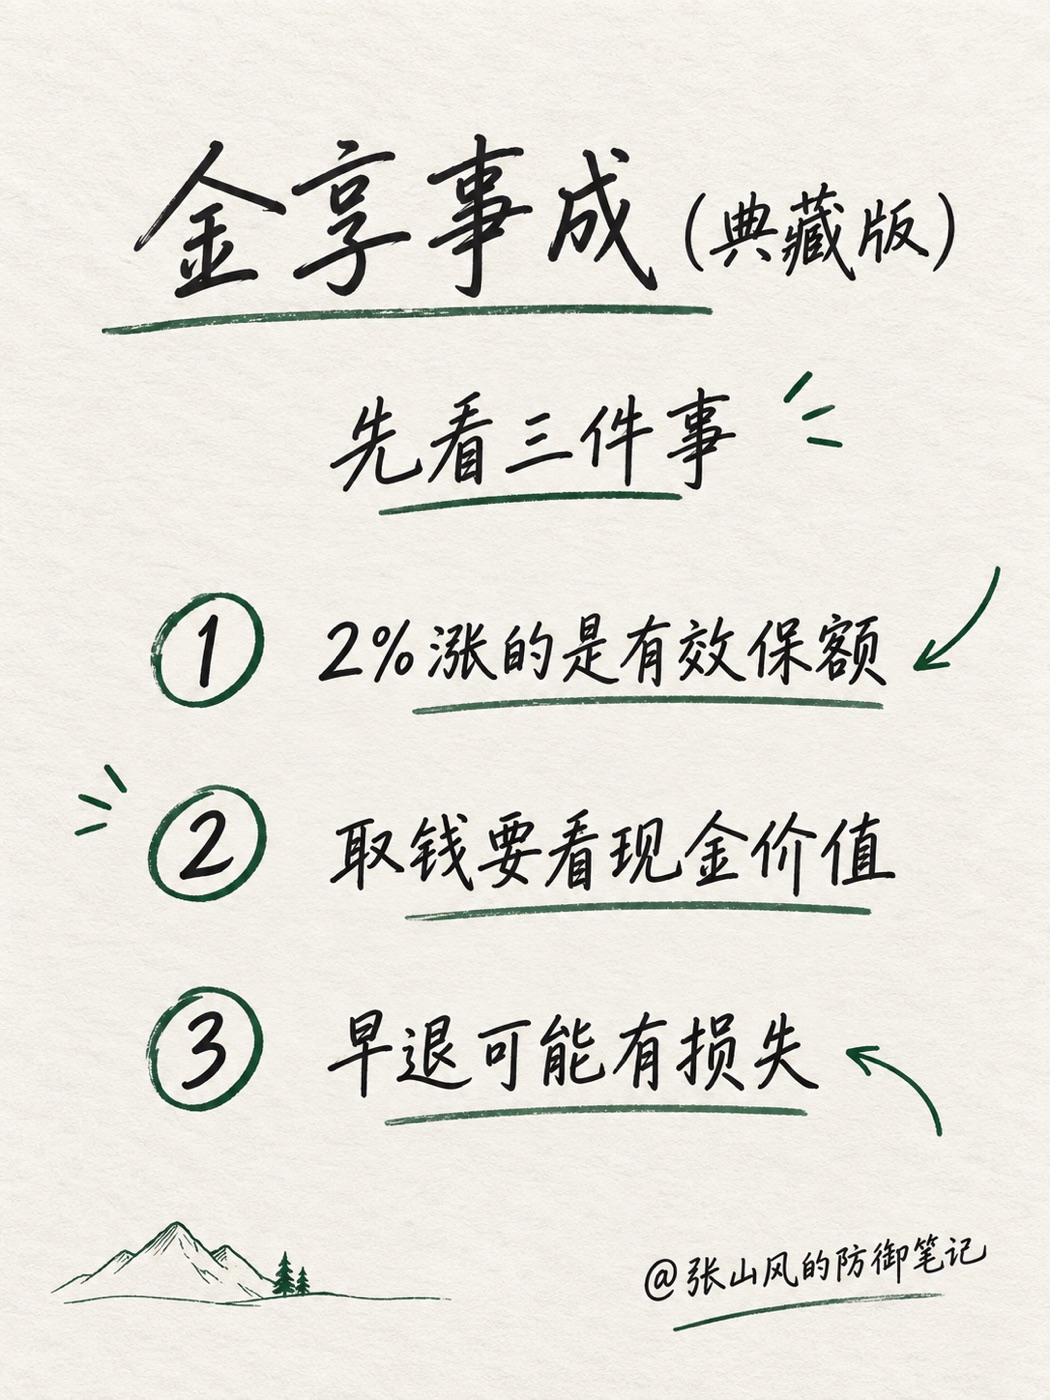 金享事成（典藏版）
先看三件事
① 2%涨的是有效保额
② 取钱要看现金价值
③ 早退可能有损失
@张山风的防御笔记